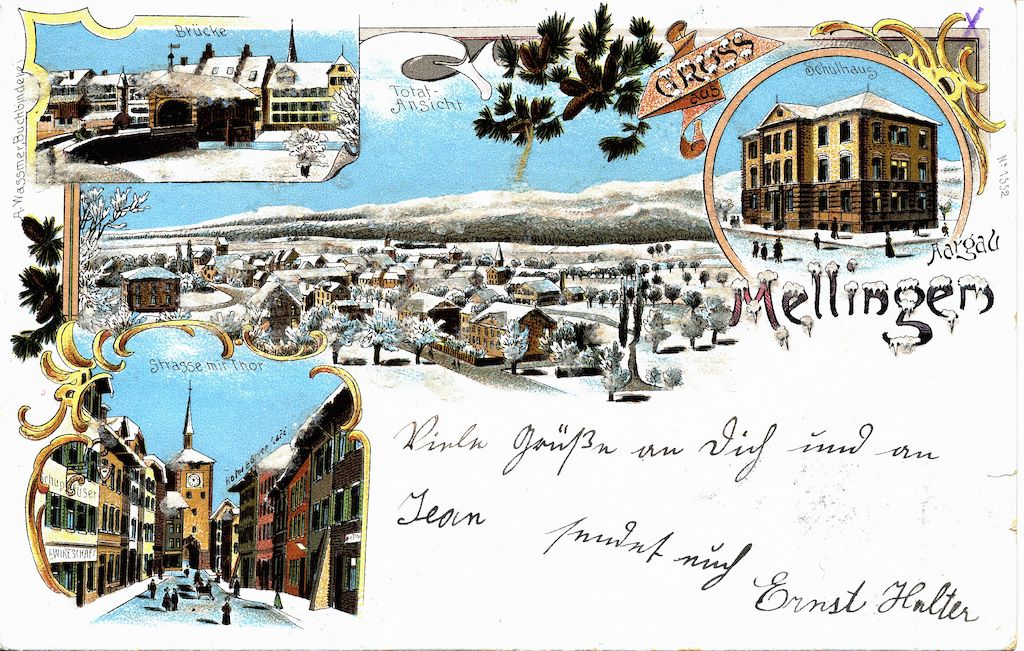 Brücke
A. Wassmer, Buchbinder
Total-
Ansicht
GRUSS
aus
Schulhaus
No 1552
Aargau
Mellingen
Strasse mit Thor
Viele Grüße an Dich und an
Jean
sendet euch
Ernst Halter